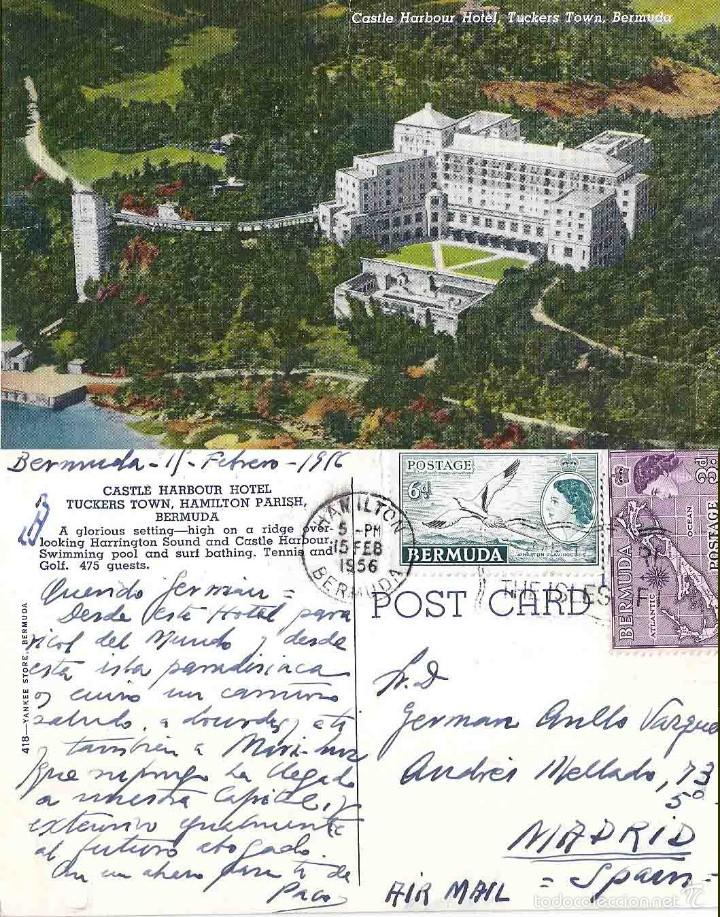 Castle Harbour Hotel, Tuckers Town, Bermuda
Bermuda - 15 - Febrero - 1956
CASTLE HARBOUR HOTEL
TUCKERS TOWN, HAMILTON PARISH,
BERMUDA
A glorious setting—high on a ridge over-
looking Harrington Sound and Castle Harbour.
Swimming pool and surf bathing. Tennis and
Golf. 475 guests.
418—YANKEE STORE, BERMUDA
Querido German =
Desde este Hotel
del Mundo y desde
esta isla paradisiaca
os envio un cariñoso
saludo, a Lourdes,
y tambien a
que supongo ha llegado
a nuestra Capital, y
extensivo igualmente
al futuro abogado.
Un abrazo para ti de
Paco
HAMILTON
5 - PM
15 FEB
1956
BERMUDA
POSTAGE
6d
BERMUDA
3d
POSTAGE
BERMUDA
ATLANTIC
OCEAN
THE ISLES
POST CARD
German Anllo Vazque
Andrés Mellado, 73
5º
MADRID
= Spain =
AIR MAIL
todocoleccion.net